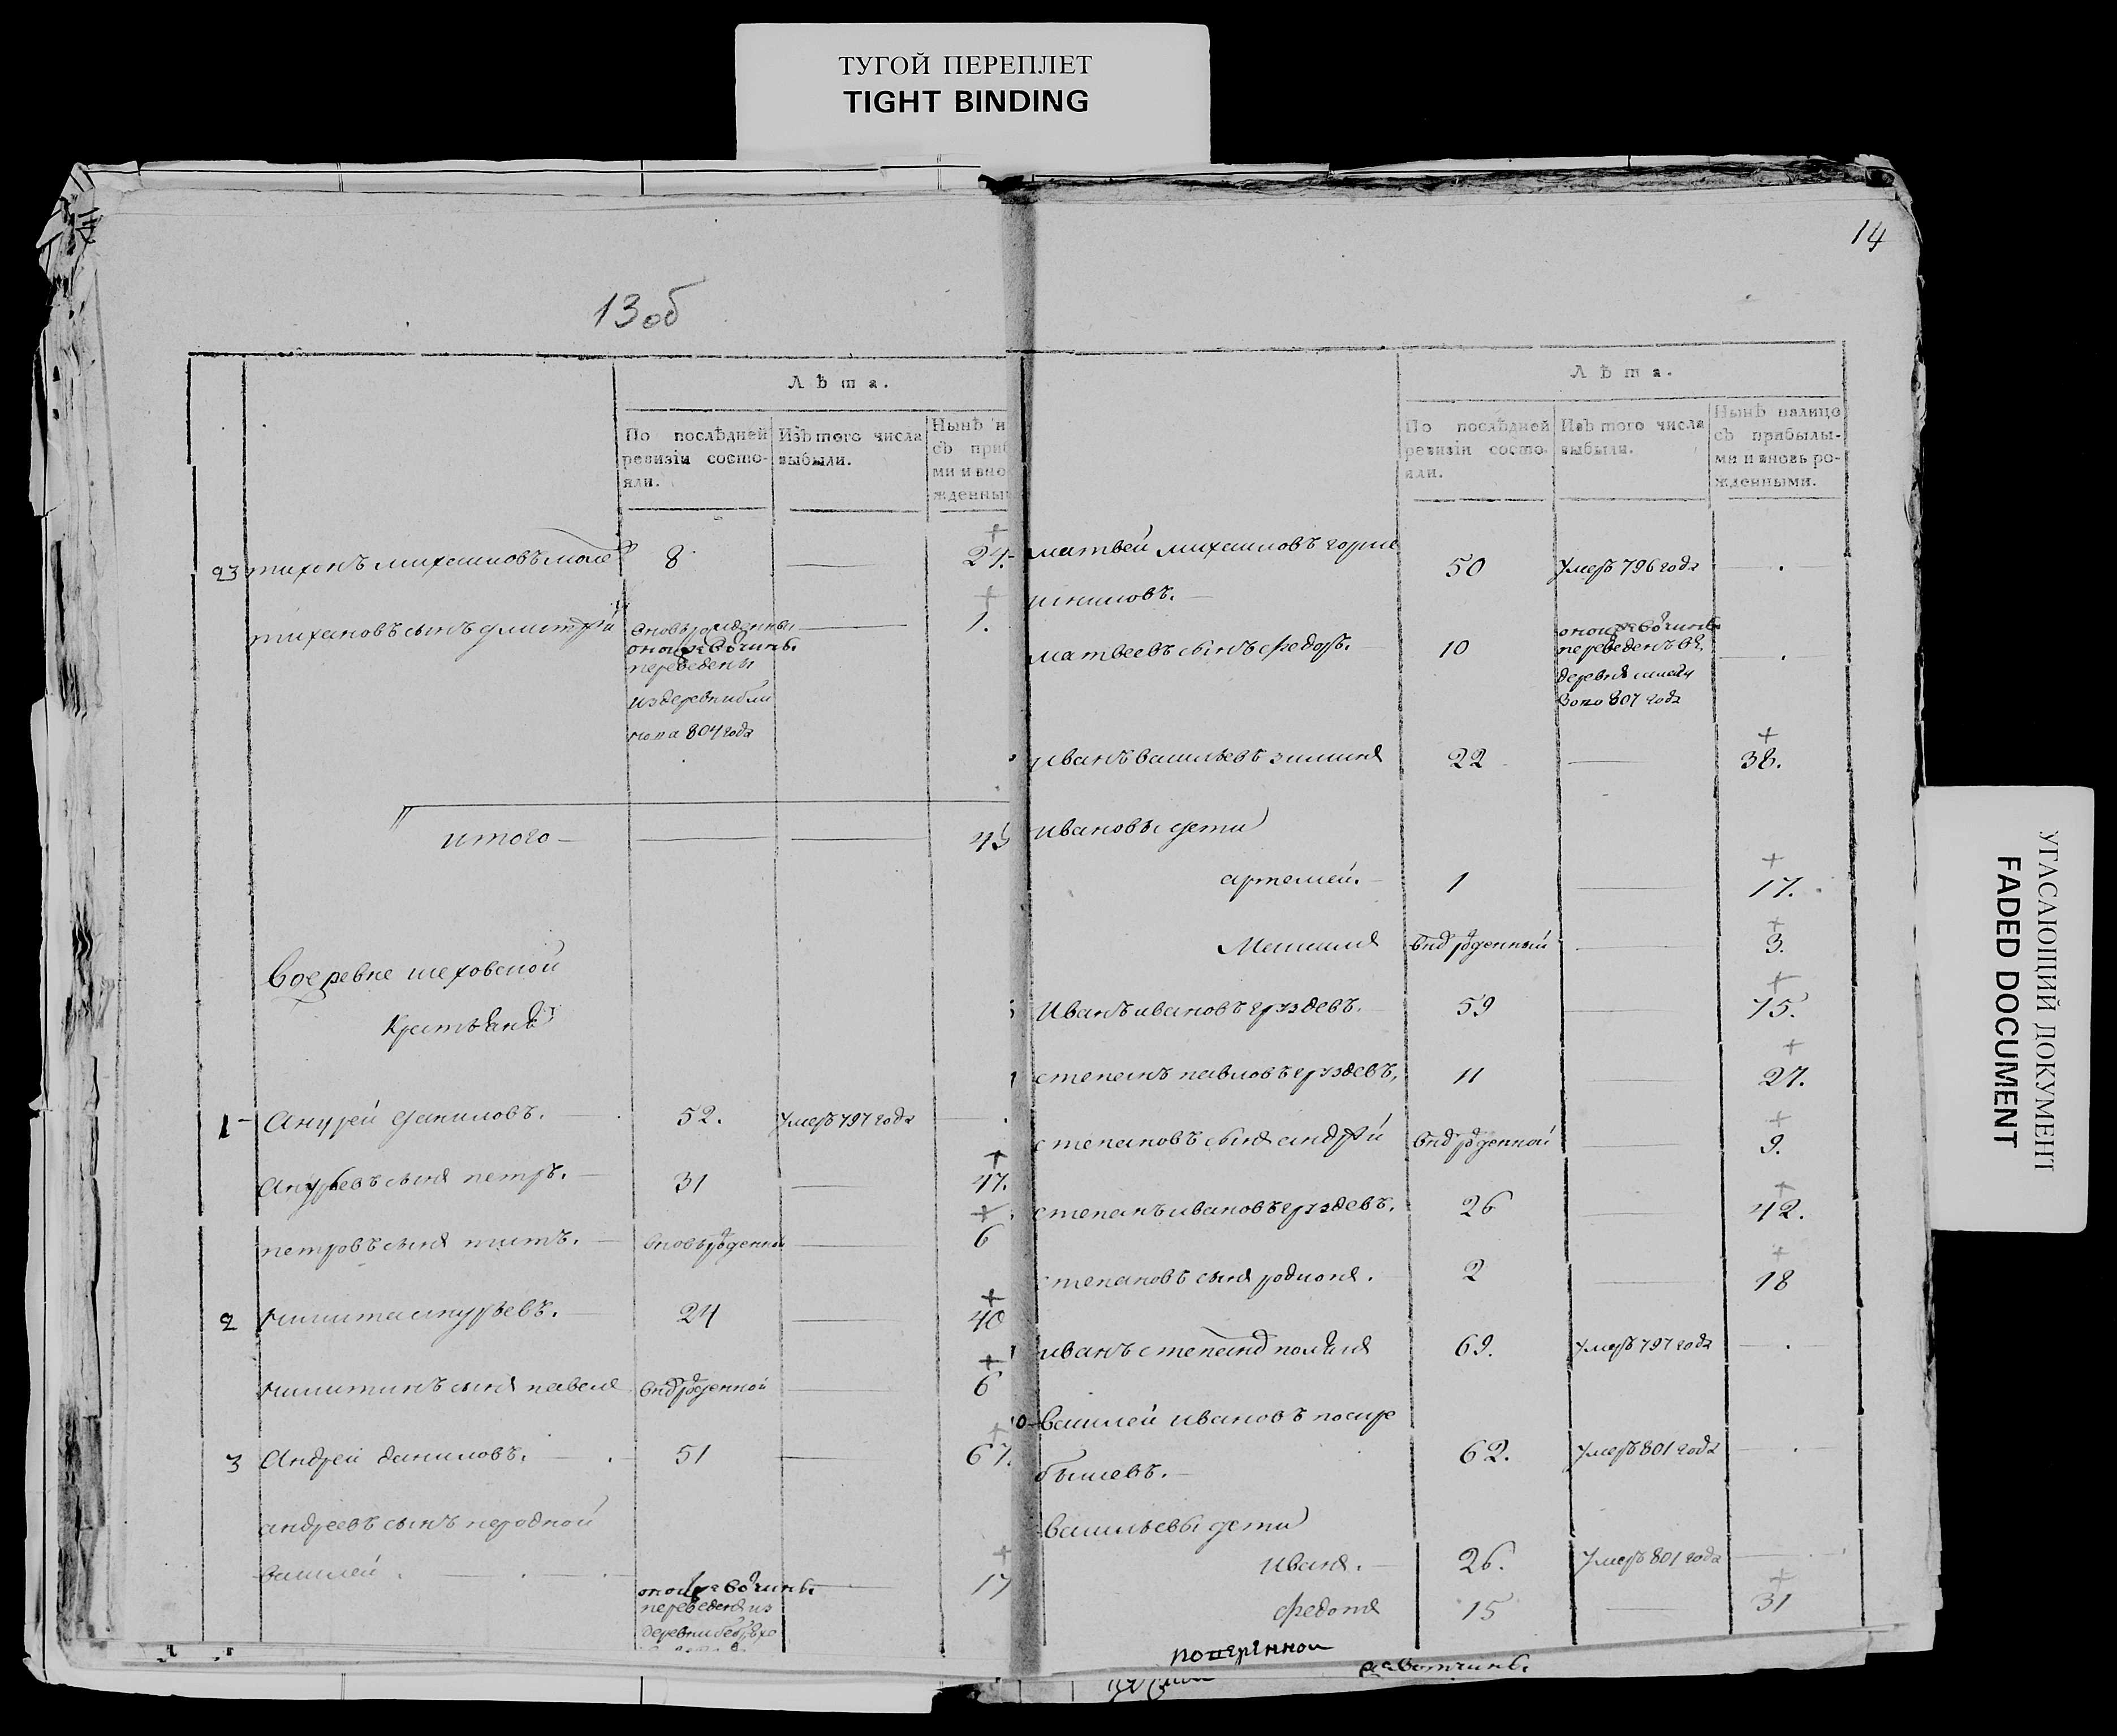 ТУГОЙ ПЕРЕПЛЕТ
TIGHT BINDING
13об
Лѣта.
По послѣдней ревизіи состо-
яли.
Изъ того числа
выбыли.
Нынѣ н
съ при
ми и вно
жденны
23 тихонъ михаиловъ 8 — 24.
тихановъ сынъ дмитрѣй вновьрожденны — 1.
переведены
из деревни
804 года
итого — 45
Вдеревне шеховской
Крестьянъ
1 Ануфрей даниловъ. 52. умеръ 797 года
Ануфрьевъ сынъ петръ. 31 — 47.
петровъ сынъ титъ. вновьрожденны — 6
2 никита ануфрьевъ. 24 — 40
никитинъ сынъ павелъ внврожденной — 6
3 Андрей даниловъ. 51 — 67.
андреевъ сынъ неродной
василей. — 17
переведенъ из
деревни
14
Лѣта.
По послѣдней
ревизіи состо-
яли.
Изъ того числа
выбыли.
Нынѣ налицо
съ прибылы-
ми и вновь ро-
жденными.
матвей михаиловъ 50 умеръ 796 года
матвеевъ сынъ федоръ. 10
переведенъ въ
деревню
807 года
иванъ васильевъ зиминъ 22 — 38.
ивановы дети
артемей. 1 — 17.
внврожденный — 3.
Иванъ ивановъ груздевъ. 59 — 75.
степанъ павловъ груздевъ, 11 — 27.
степановъ сынъ андрѣй внврожденной — 9.
степанъ ивановъ груздевъ. 26 — 42.
степановъ сынъ родионъ. 2 — 18
иванъ степанв 69. умеръ 797 года
василей ивановъ поскре
бышевъ. 62. умеръ 801 года
васильевы дети
иванъ. 26. умеръ 801 года
федотъ 15 — 31
УГАСАЮЩИЙ ДОКУМЕНТ
FADED DOCUMENT